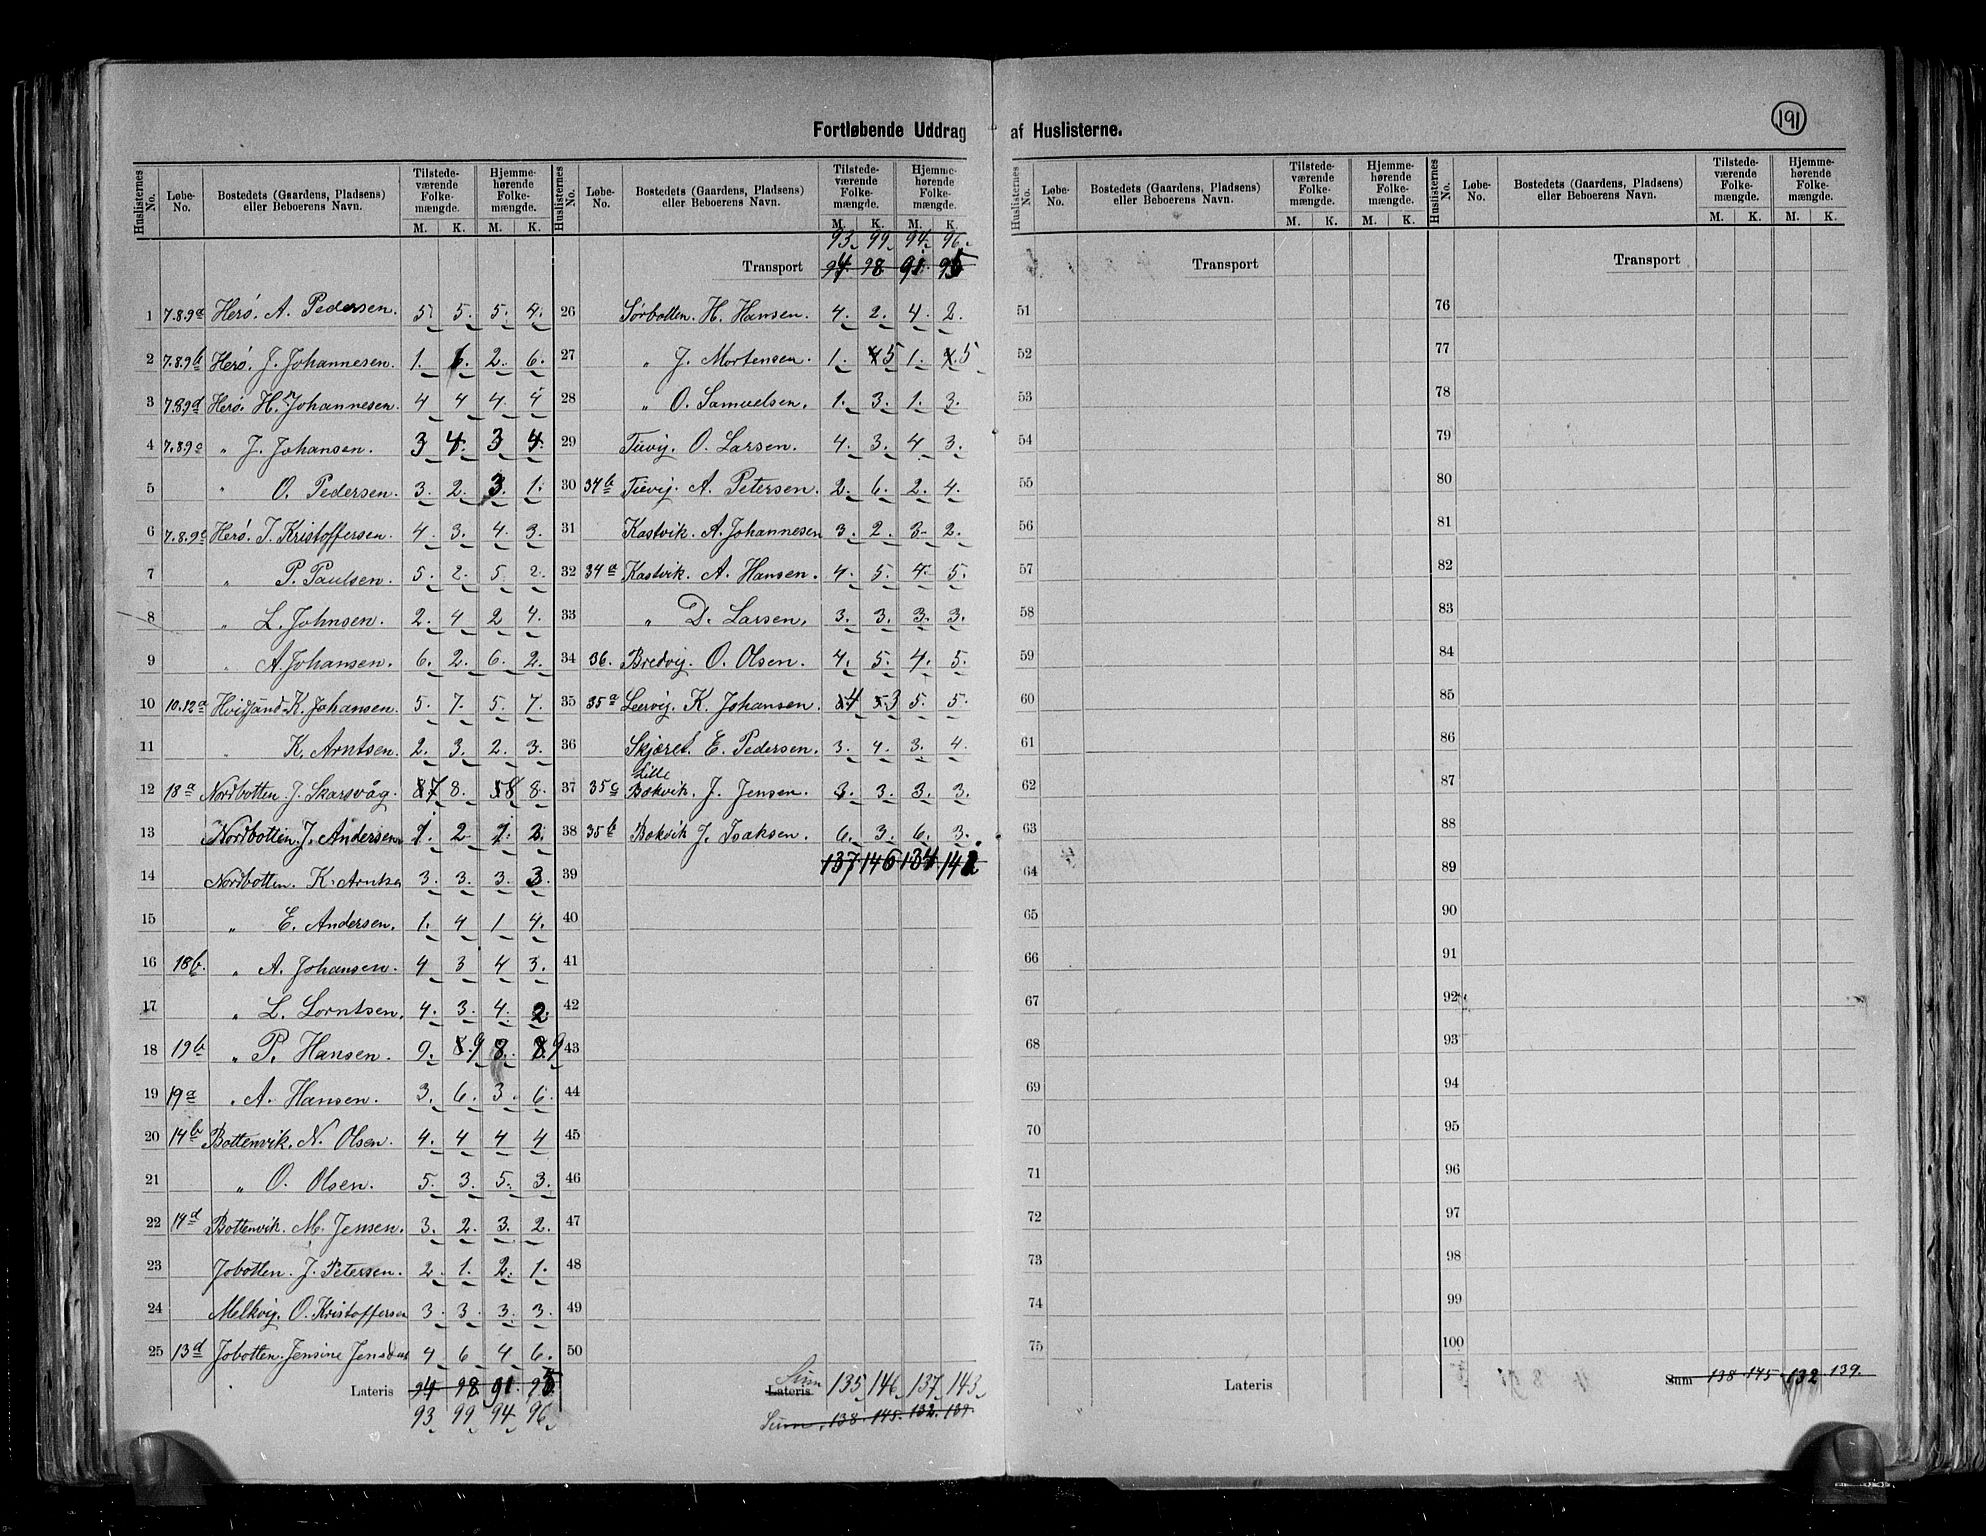 191
Fortløbende Uddrag af Huslisterne.
Huslisternes No. Løbe-No. Bostedets (Gaardens, Pladsens) eller Beboerens Navn. Tilstede-værende Folke-mængde. M. K. Hjemme-hørende Folke-mængde. M. K.
1 7.8.9a Herö. A. Pedersen. 5 5. 5. 4.
2 7.8.9b Herö. J. Johannesen. 1. 6. 2. 6.
3 7.8.9d Herö. H. Johannesen. 4 4 4. 4
4 7.8.9c " J. Johansen. 3 4. 3 4.
5 " O. Pedersen. 3. 2. 3. 1.
6 7.8.9e Herö. J. Kristoffersen. 4. 3. 4. 3.
7 " P. Paulsen. 5. 2. 5. 2.
8 " L. Johnsen. 2. 4 2 4.
9 " A. Johansen. 6. 2. 6. 2.
10 10.12a K. Johansen. 5. 7. 5. 7.
11 " K. Arntsen. 2. 3. 2. 3.
12 18a Nordbotten. J. Skarsvåg. 7 8. 8 8.
13 Nordbotten. J. Andersen 1. 2 1. 2.
14 Nordbotten. K. Arntsen 3. 3. 3. 3.
15 " E. Andersen. 1. 4 1 4.
16 18b. " A. Johansen. 4 3 4 3.
17 " L. Lorntsen. 4. 3. 4. 2
18 19b " P. Hansen. 9. 9 8. 9
19 19a " A. Hansen. 3. 6. 3. 6.
20 14b Bottenvik. N. Olsen. 4. 4 4 4
21 " O. Olsen. 5. 3. 5. 3.
22 Bottenvik. M. Jensen. 3. 2. 3. 2.
23 Jobotten. J. Petersen. 2. 1. 2. 1.
24 Melkvig. O. Kristoffersen 3. 3. 3. 3.
25 13d Jobotten. Jensine 4 6 4 6.
Lateris 94 98. 91. 95
93 99 94 96
Huslisternes No. Løbe-No. Bostedets (Gaardens, Pladsens) eller Beboerens Navn. Tilstede-værende Folke-mængde. M. K. Hjemme-hørende Folke-mængde. M. K.
93 99 94 96
Transport 94. 98. 91. 95
26 Sørbotten. H. Hansen. 4. 2. 4. 2.
27 " J. Mortensen. 1. 5 1. 5
28 " O. Samuelsen. 1. 3. 1. 3.
29 O. Larsen. 4. 3. 4 3.
30 34b A. Petersen. 2. 6. 2. 4.
31 Kastvik. A. Johannesen 3. 2. 3. 2.
32 34a Kastvik. A. Hansen. 4. 5. 4. 5.
33 " D. Larsen. 3. 3. 3. 3.
34 36. Bredvig. O. Olsen. 4. 5. 4. 5.
35 35a Leervig. K. Johansen 4 3 5. 5.
36 Skjæret. E. Pedersen. 3. 4. 3. 4.
Lille
37 35c Bokvik. J. Jensen. 3. 3. 3. 3.
38 35b Bokvik J. Isaksen. 6. 3. 6. 3.
39 137 146 134 142
40
41
42
43
44
45
46
47
48
49
50
Sum
Lateris 135 146 137 143
Sum. 138. 145. 132. 139.
Huslisternes No. Løbe-No. Bostedets (Gaardens, Pladsens) eller Beboerens Navn. Tilstede-værende Folke-mængde. M. K. Hjemme-hørende Folke-mængde. M. K.
Transport
51
52
53
54
55
56
57
58
59
60
61
62
63
64
65
66
67
68
69
70
71
72
73
74
75
Lateris
Huslisternes No. Løbe-No. Bostedets (Gaardens, Pladsens) eller Beboerens Navn. Tilstede-værende Folke-mængde. M. K. Hjemme-hørende Folke-mængde. M. K.
Transport
76
77
78
79
80
81
82
83
84
85
86
87
88
89
90
91
92
93
94
95
96
97
98
99
100
Sum 138 145 132 139.